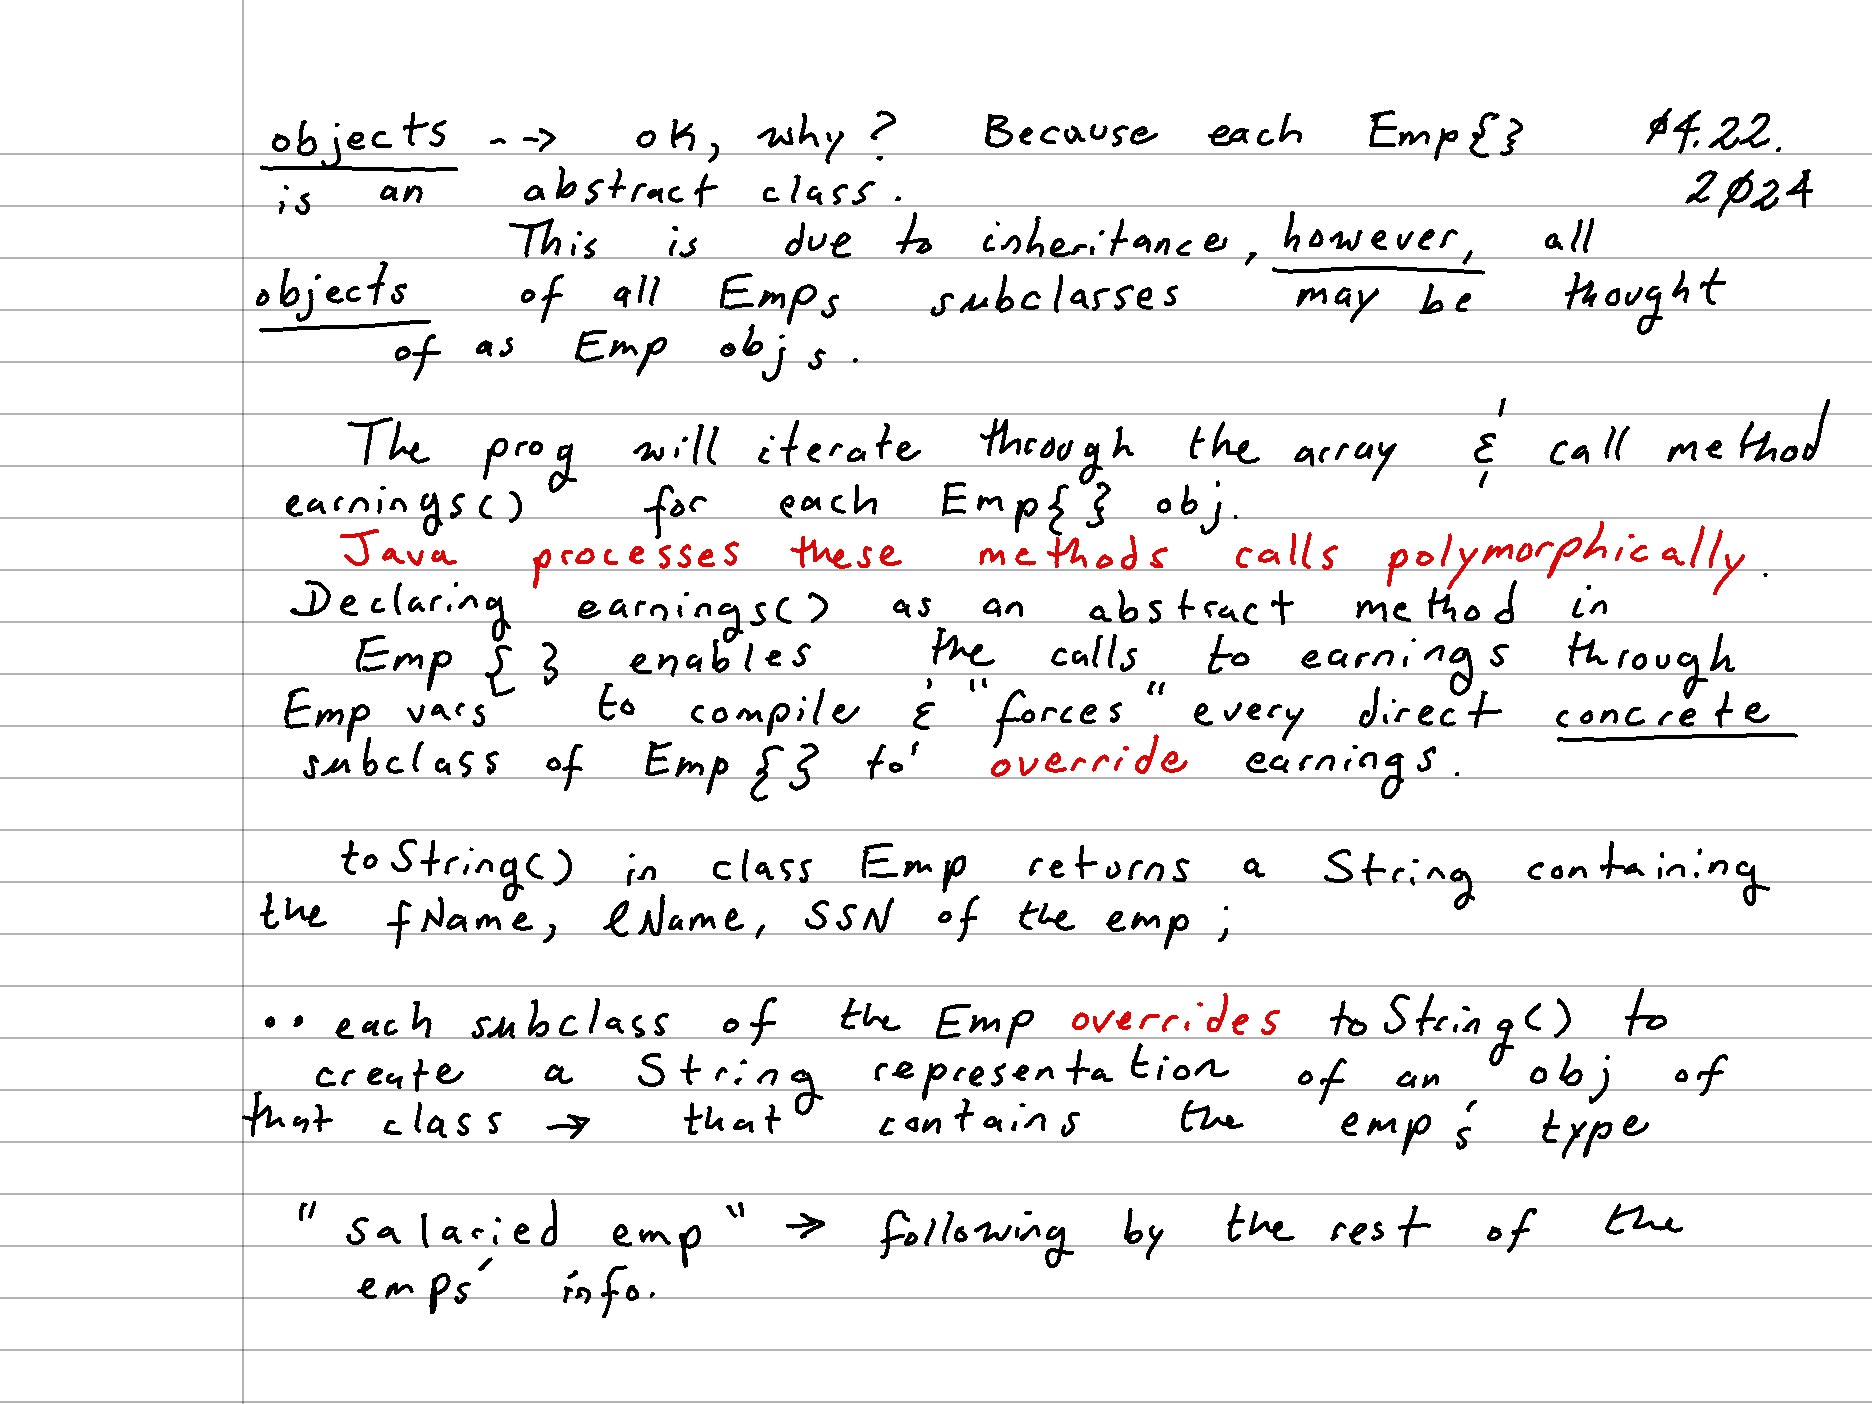 objects --> ok, why? Because each Emp{} 04.22.
is an abstract class. 2024
This is due to inheritance, however, all
objects of all Emps subclasses may be thought
of as Emp objs.
The prog will iterate through the array & call method
earnings() for each Emp{} obj.
Java processes these methods calls polymorphically.
Declaring earnings() as an abstract method in
Emp{} enables the calls to earnings through
Emp vars to compile & "forces" every direct concrete
subclass of Emp{} to override earnings.
toString() in class Emp returns a String containing
the fName, lName, SSN of the emp;
.. each subclass of the Emp overrides toString() to
create a String representation of an obj of
that class → that contains the emp's type
"salaried emp" → following by the rest of the
emps' info.